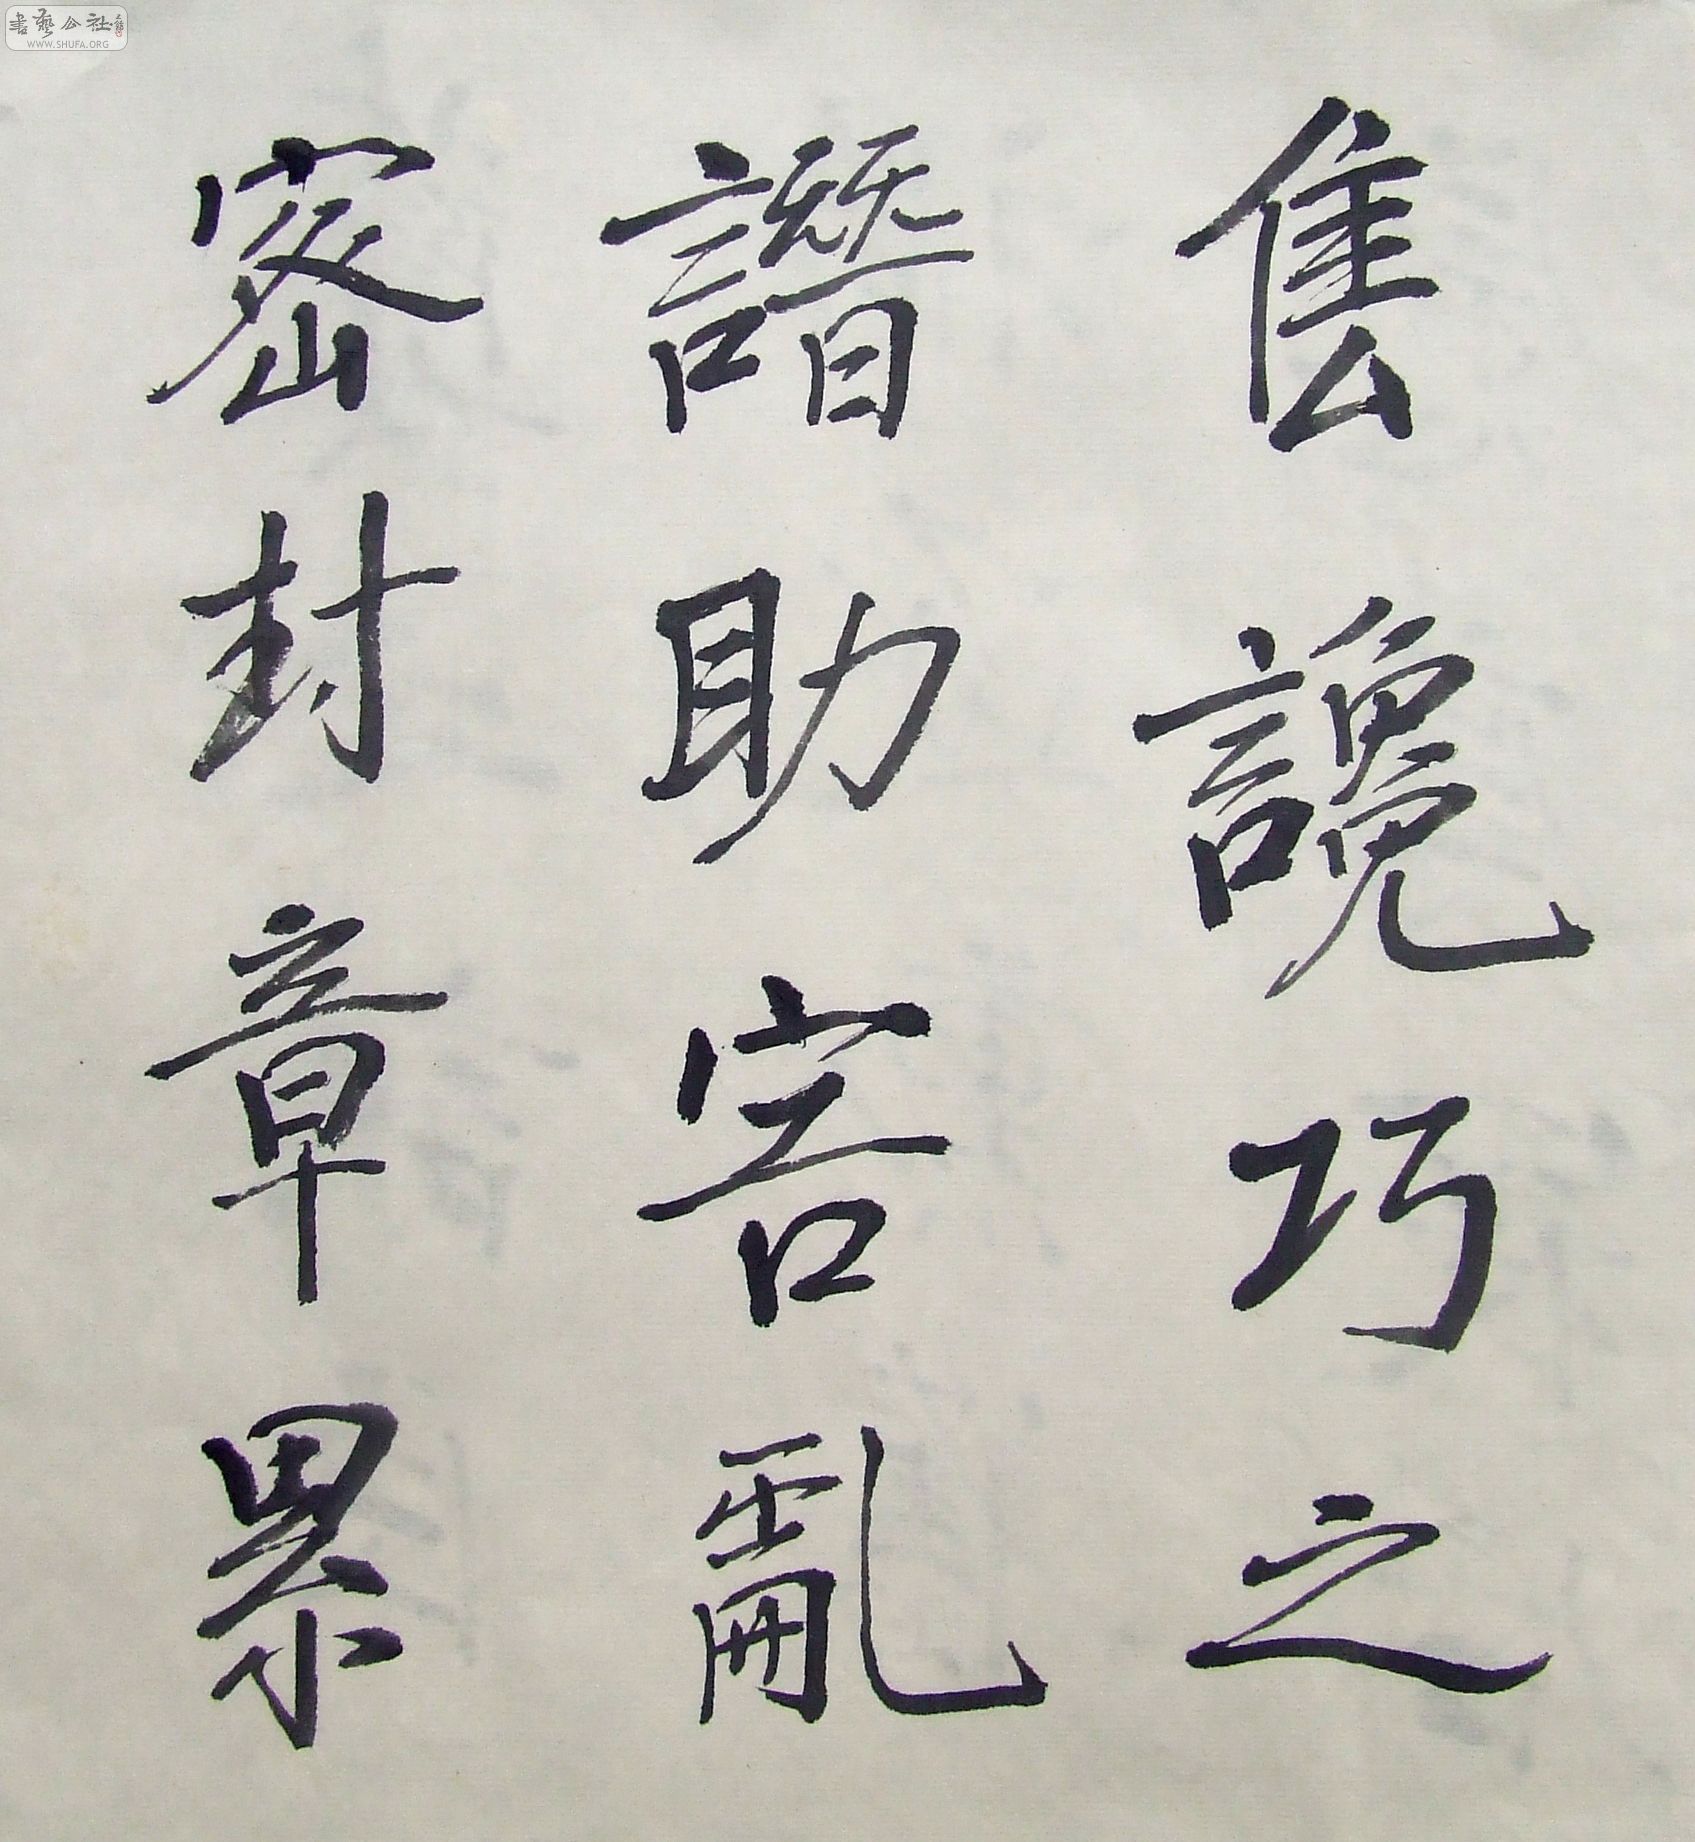 售讒巧之
譖助害亂
密封章累
書藝公社
WWW.SHUFA.ORG